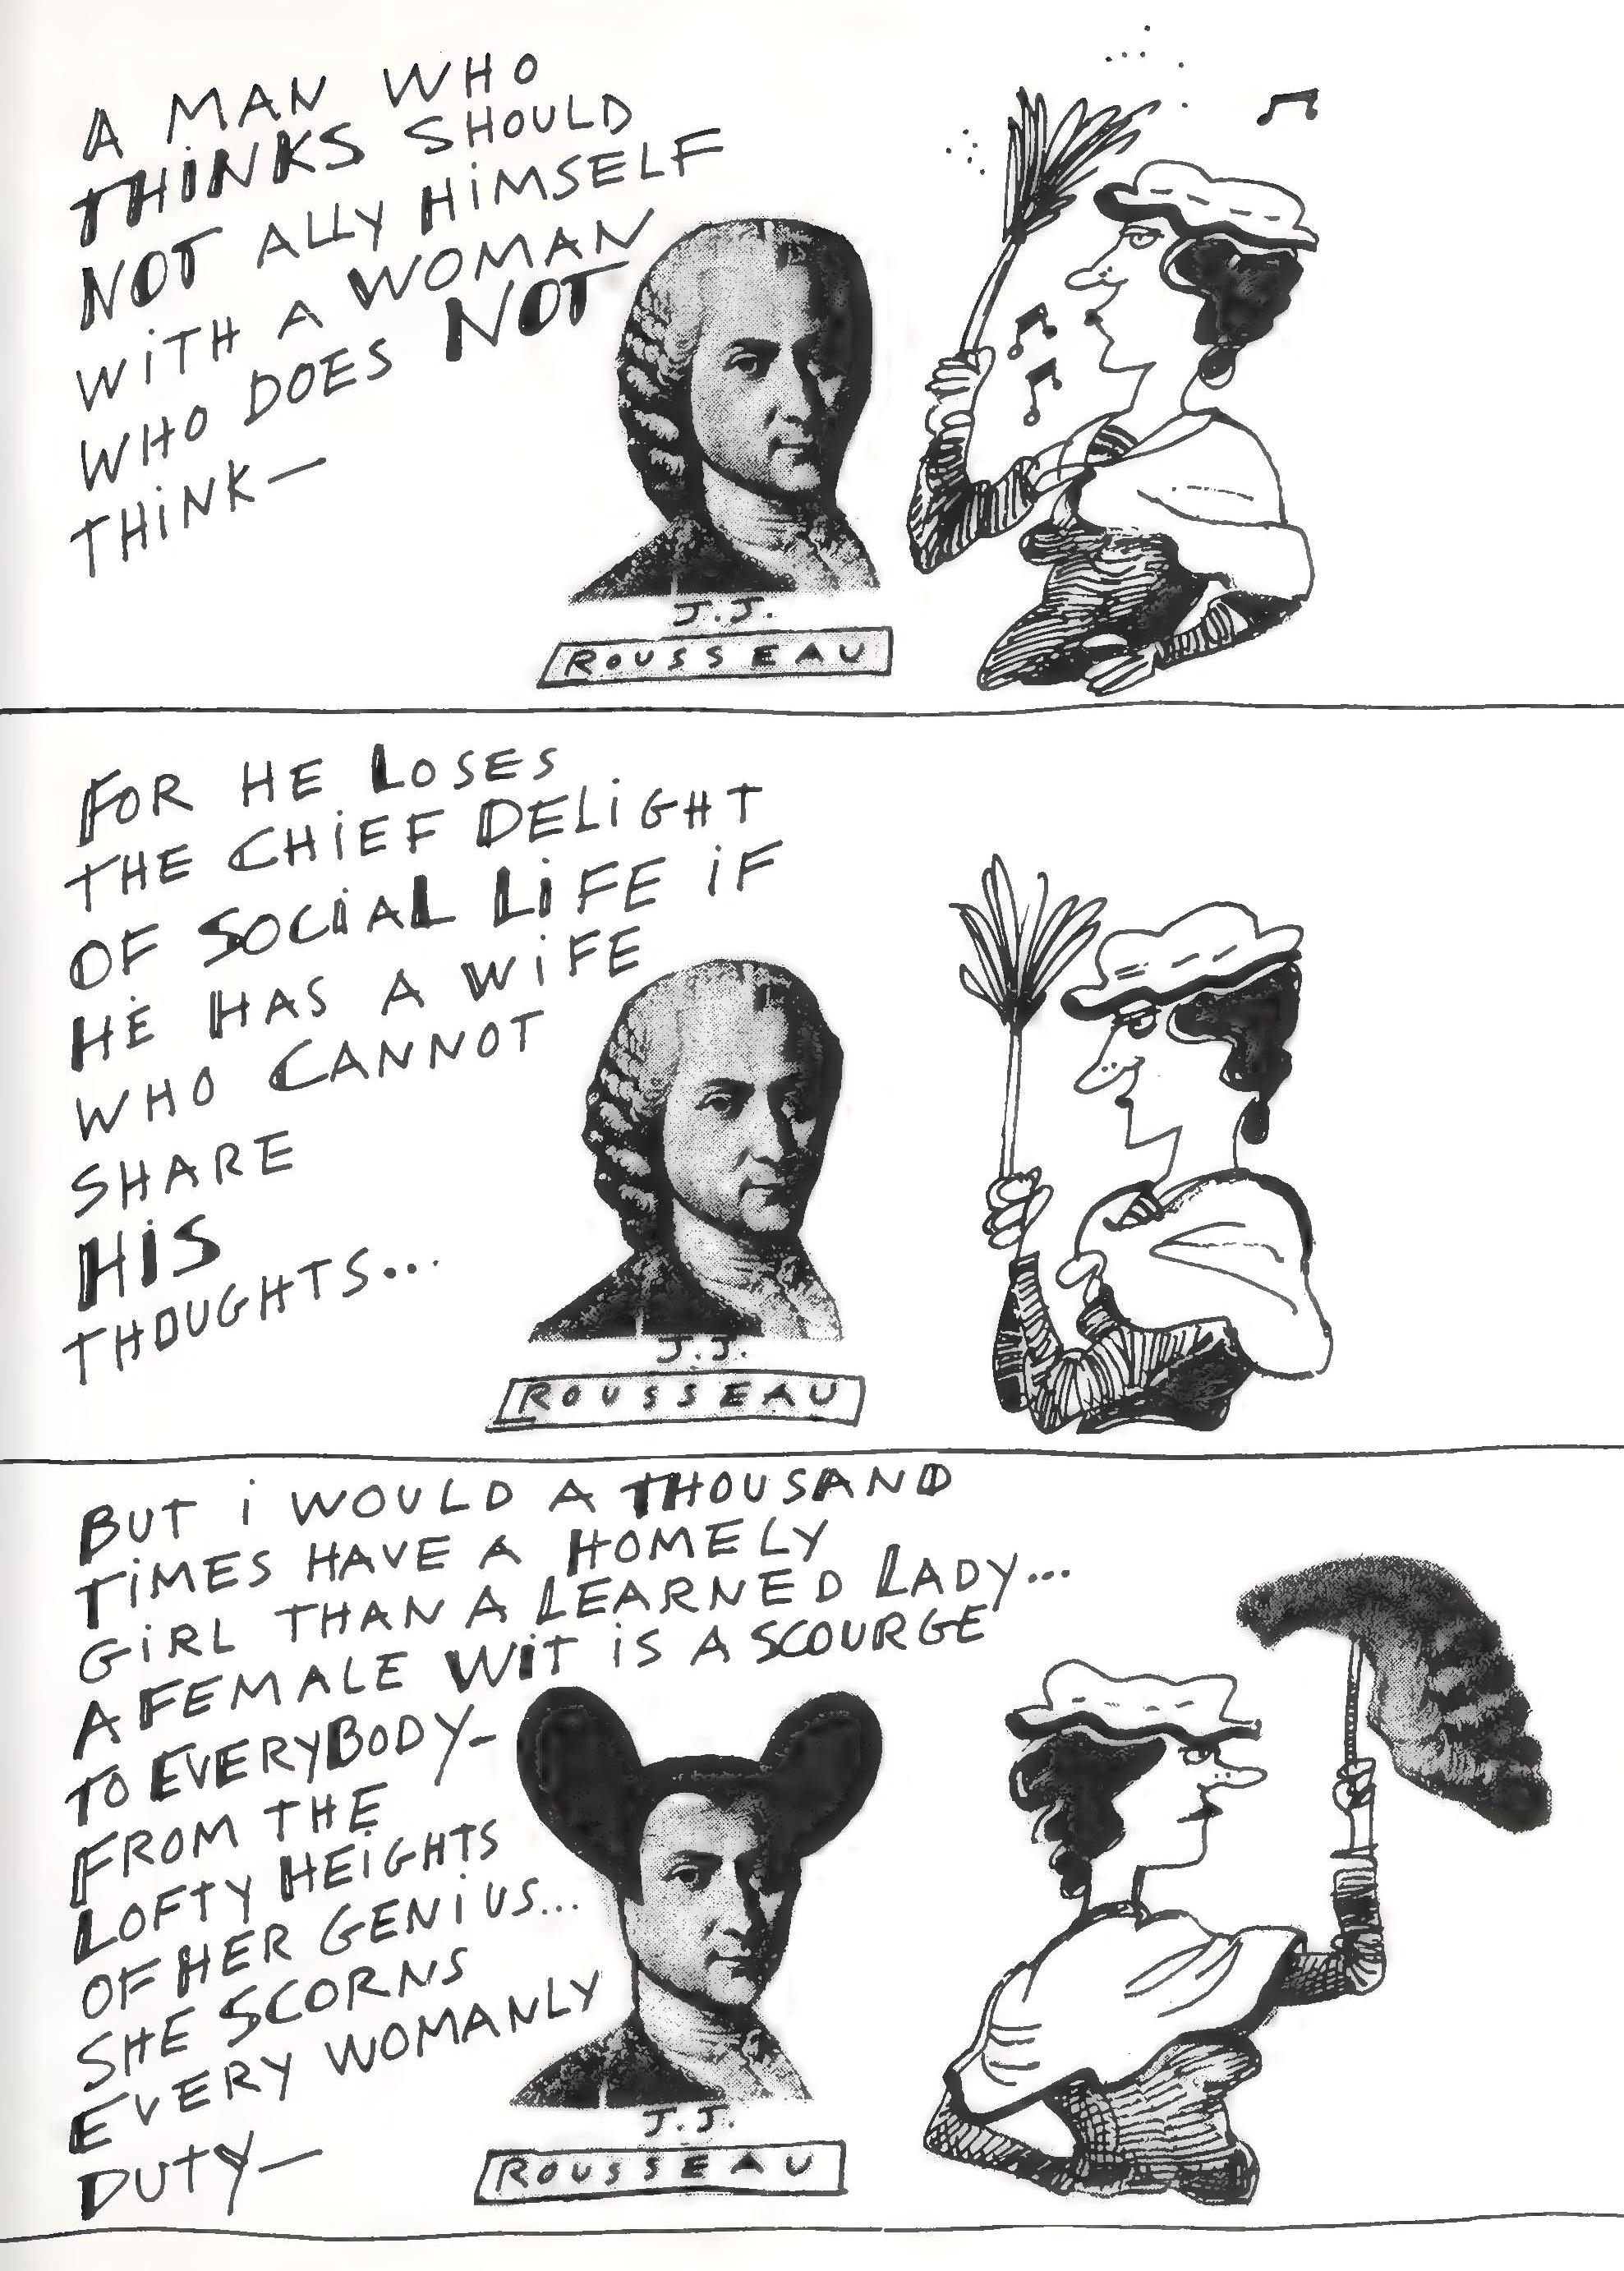 A MAN WHO
THINKS SHOULD
NOT ALLY HIMSELF
WITH A WOMAN
WHO DOES NOT
THINK—
J.J.
ROUSSEAU
FOR HE LOSES
THE CHIEF DELIGHT
OF SOCIAL LIFE IF
HE HAS A WIFE
WHO CANNOT
SHARE
HIS
THOUGHTS...
J.J.
ROUSSEAU
BUT I WOULD A THOUSAND
TIMES HAVE A HOMELY
GIRL THAN A LEARNED LADY...
A FEMALE WIT IS A SCOURGE
TO EVERYBODY-
FROM THE
LOFTY HEIGHTS
OF HER GENIUS...
SHE SCORNS
EVERY WOMANLY
DUTY—
J.J.
ROUSSEAU